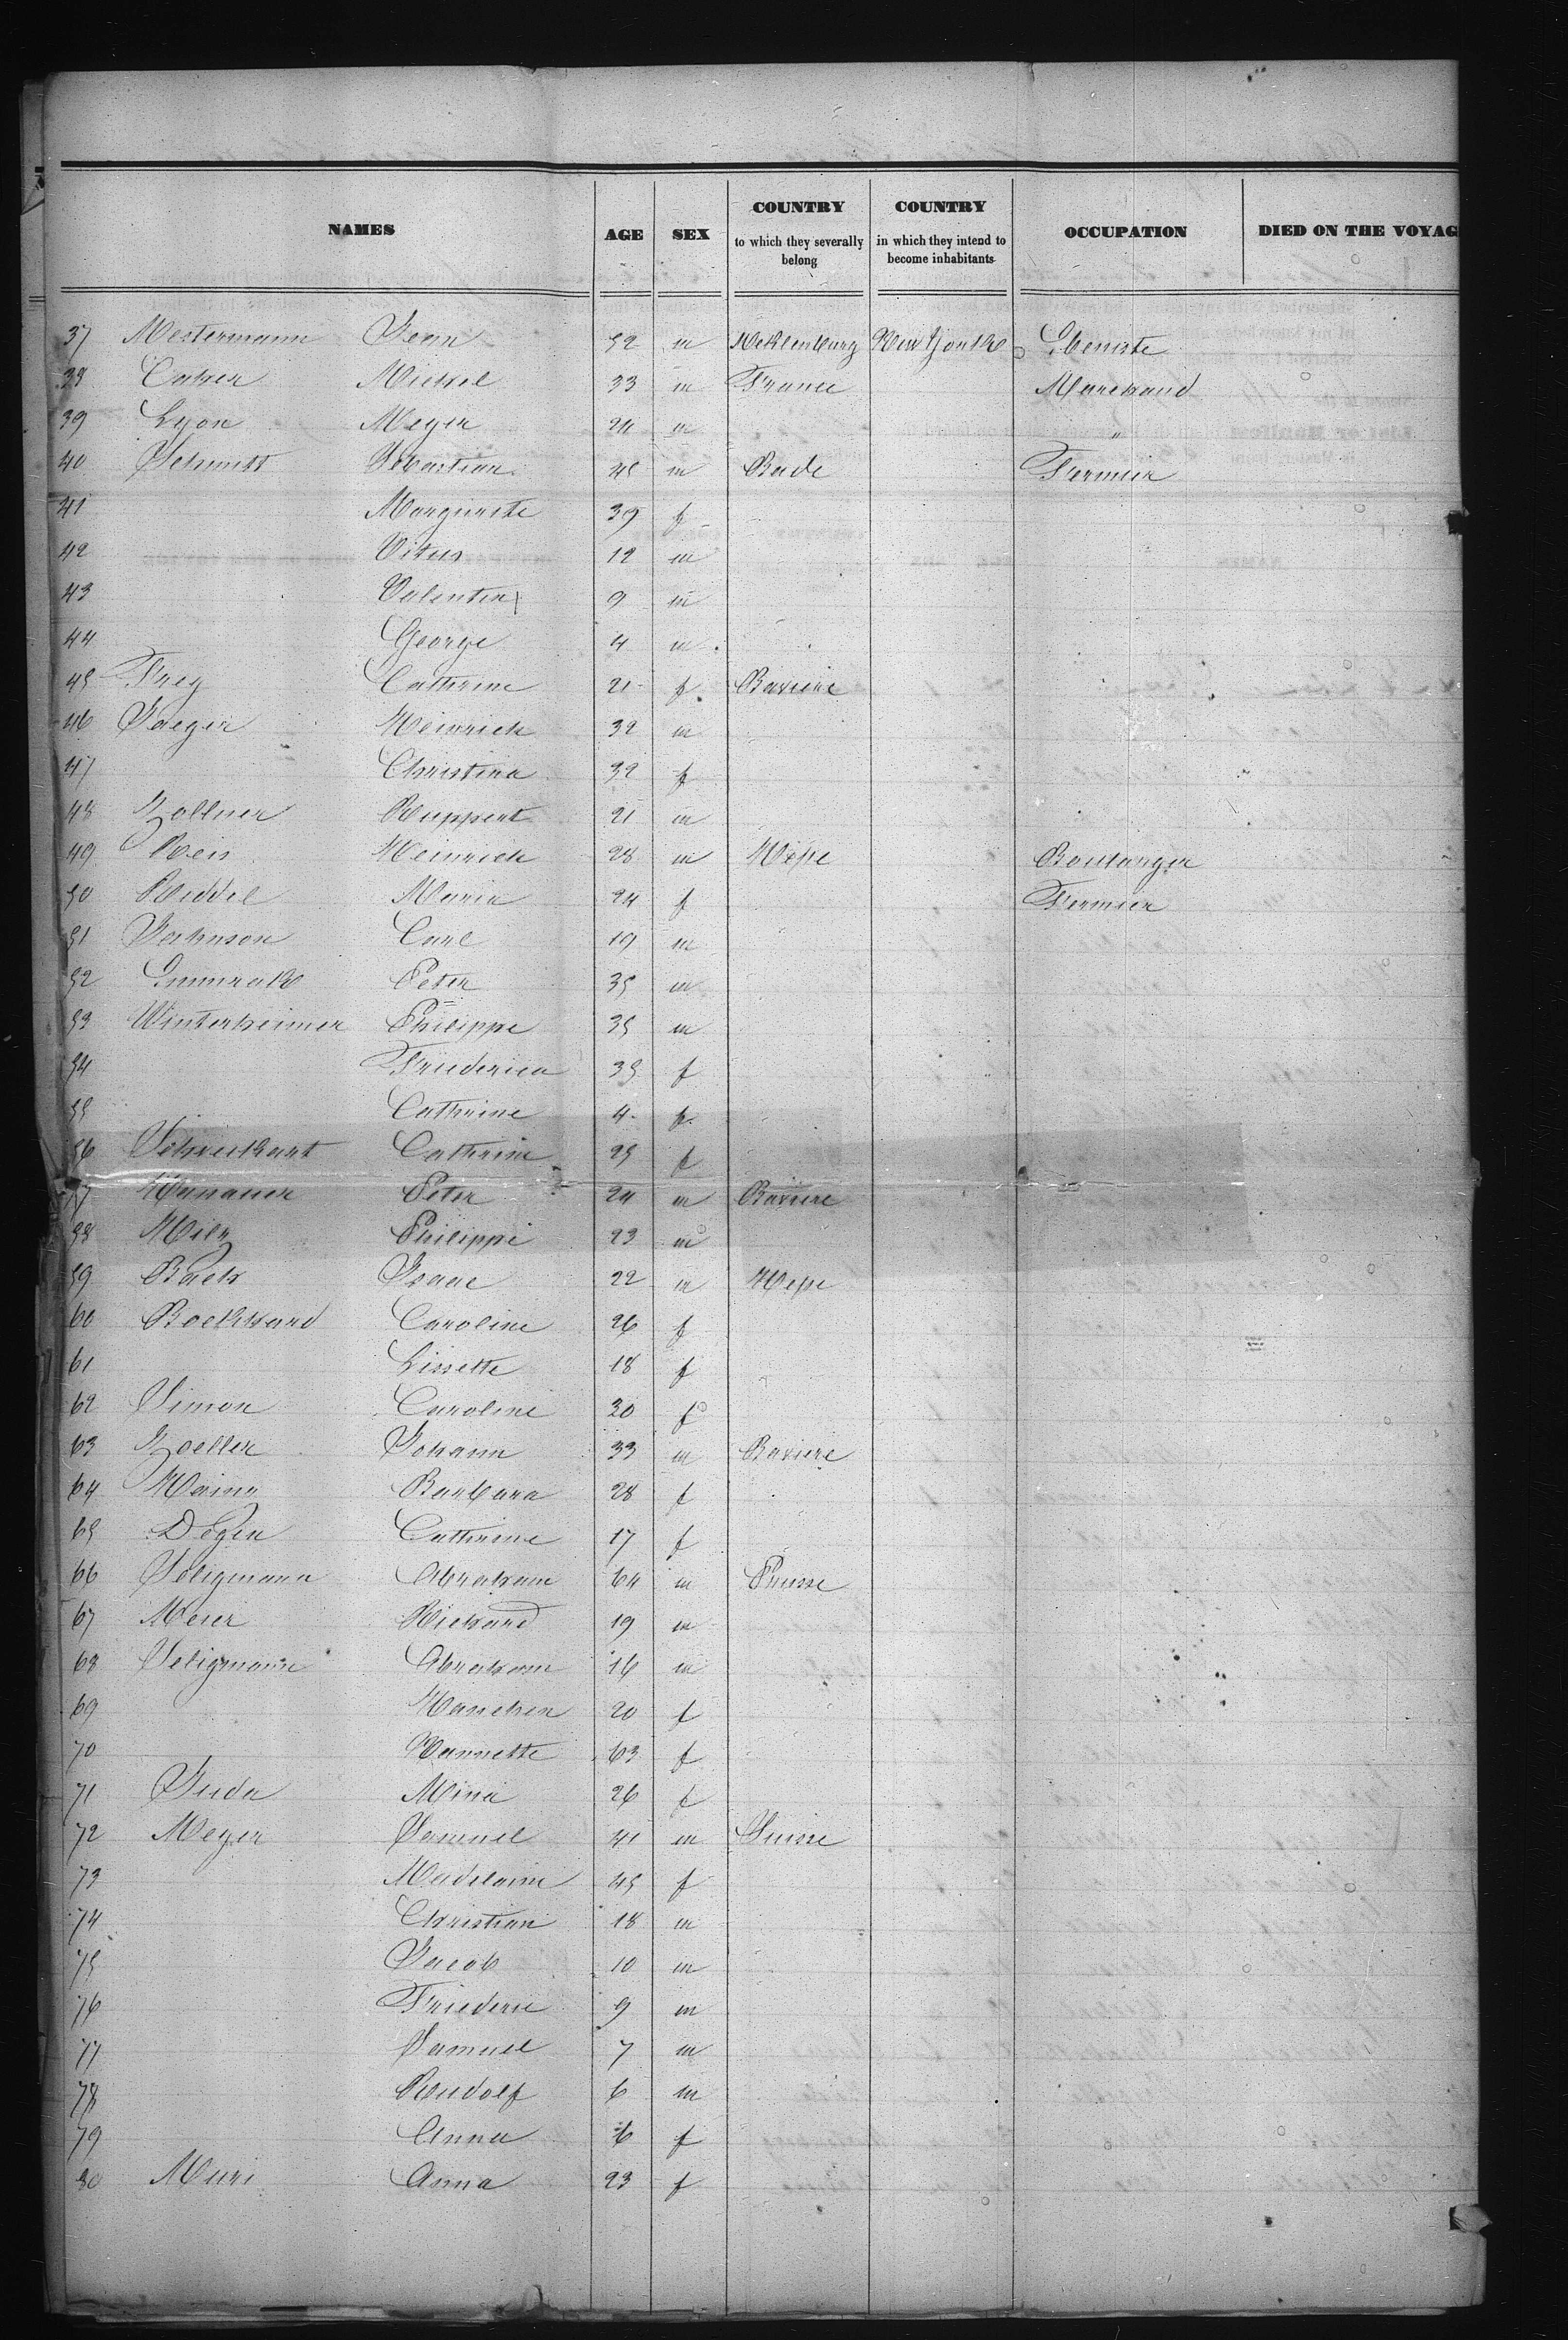 NAMES AGE SEX COUNTRY to which they severally belong COUNTRY in which they intend to become inhabitants OCCUPATION DIED ON THE VOYAG
37 Mestermann Jean 52 m Mecklenburg New Yorck Ebeniste
38 Caher Michel 33 m France Marchand
39 Lyon Meyer 24 m "
40 Schmitt Sebastian 45 m Bade Fermier
41 Marguerite 39 f
42 Vitus 12 m
43 Valentin 9 m
44 George 4 m
45 Frey Cathrine 21 f Baviere
46 Jaeger Heinrich 32 m
47 Christina 32 f
48 Zollner Ruppert 21 m
49 Reis Heinrich 28 m Hesse Boulanger
50 Riddel Maria 24 f Fermier
51 Jacknson Carl 19 m
52 Peter 35 m
53 Winterheimer Philippe 35 m
54 Friederica 35 f
55 Cathrine 4 f
56 Schuckart Cathrine 25 f
57 Hanauer Peter 24 m Baviere
58 Milz Philippe 23 m
59 Bach Isaac 22 m Hesse
60 Caroline 26 f
61 Lissette 18 f
62 Simon Caroline 30 f
63 Zoeller Johann 33 m Baviere
64 Mainz Barbara 28 f
65 Degen Cathrine 17 f
66 Seligmann Abraham 64 m Prusse
67 Meier Richard 19 m
68 Seligmann Abraham 16 m
69 Hannchen 20 f
70 Nannette 63 f
71 Juda Mina 26 f
72 Meyer Samuel 41 m Suisse
73 Madelaine 45 f
74 Christian 18 m
75 Jacob 10 m
76 Friederic 9 m
77 Samuel 7 m
78 Rudolf 6 m
79 Anna 6 f
80 Muri Anna 23 f